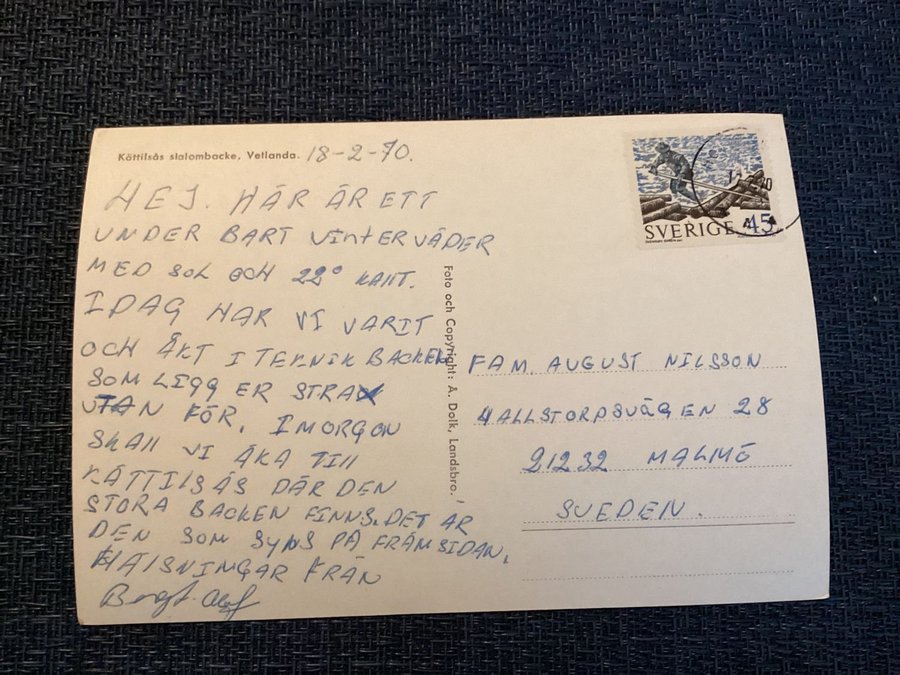 Köttilsås slalombacke, Vetlanda. 18-2-70.
HEJ. HÄR ÄR ETT
UNDER BART VINTERVÄDER
MED SOL OCH 22° KANT.
IDAG HAR VI VARIT
OCH ÅKT I TEKNIK BACKEN
SOM LIGG ER STRAX
UTAN FÖR. IMORGON
SKALL VI ÅKA TILL
KÄTTILSÅS DÄR DEN
STORA BACKEN FINNS. DET ÄR
DEN SOM SYNS PÅ FRAMSIDAN.
HÄLSNINGAR FRÅN
Bengt-Olof
Foto och Copyright: A. Dolk, Landsbro.
SVERIGE 45
FAM. AUGUST NILSSON
HALLSTORPSVÄGEN 28
21232 MALMÖ
SVEDEN.